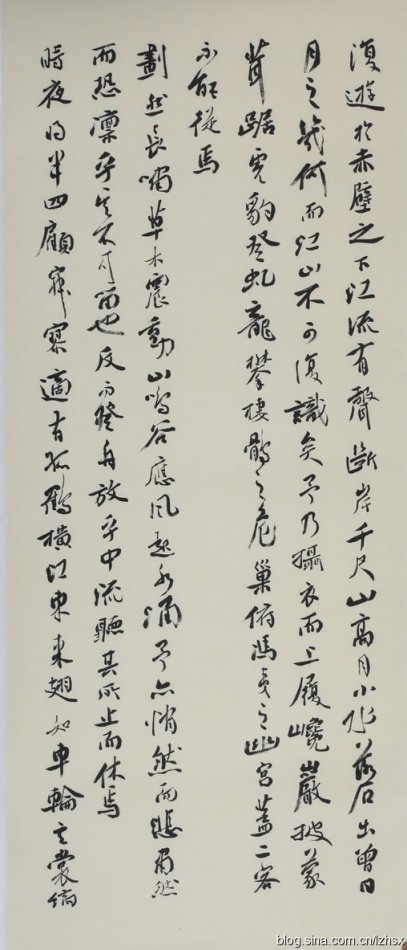 復遊於赤壁之下江流有聲斷岸千尺山高月小水落石出曾日
月之幾何而江山不可復識矣予乃攝衣而上履巉巖披蒙
茸踞虎豹登虬龍攀棲鶻之危巢俯馮夷之幽宮蓋二客
不能從焉
劃然長嘯草木震動山鳴谷應風起水涌予亦悄然而悲肅然
而恐凜乎其不可留也反而登舟放乎中流聽其所止而休焉
時夜將半四顧寂寥適有孤鶴橫江東來翅如車輪玄裳縞
blog.sina.com.cn/lzhsx